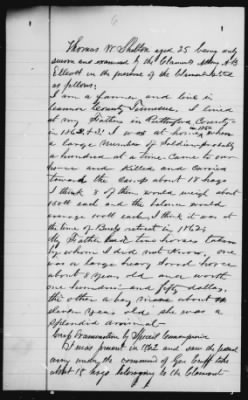 6
Thomas W. Shelton aged 25 being duly
sworn and examined by the Claimants Atty A B
Ellcott in the presence of the Claimant
as follows:
I am a farmer and live in
Cannon County Tennessee. I lived
at my Fathers in Rutherford County
in 1862 & 3. I was at home when
a large number of Soldiers probably
a hundred at a time. Came to our
house and killed and carried
towards the Camp about 18 hogs
I think 8 of them would weigh about
150 each and the balance would
average well each, I think it was at
the time of Buels retreat in 1862.
My Father had two horses taken
by whom I did not know, one
was a large Gray horse
about 8 years old and worth
one hundred and fifty dollars,
the other a bay mare about
eleven years old she was a
splendid animal
Cross Examination by Special Commissioner
It was present in 1862 and saw the federal
army under the command of Gen take
about 18 hogs belonging to the Claimant